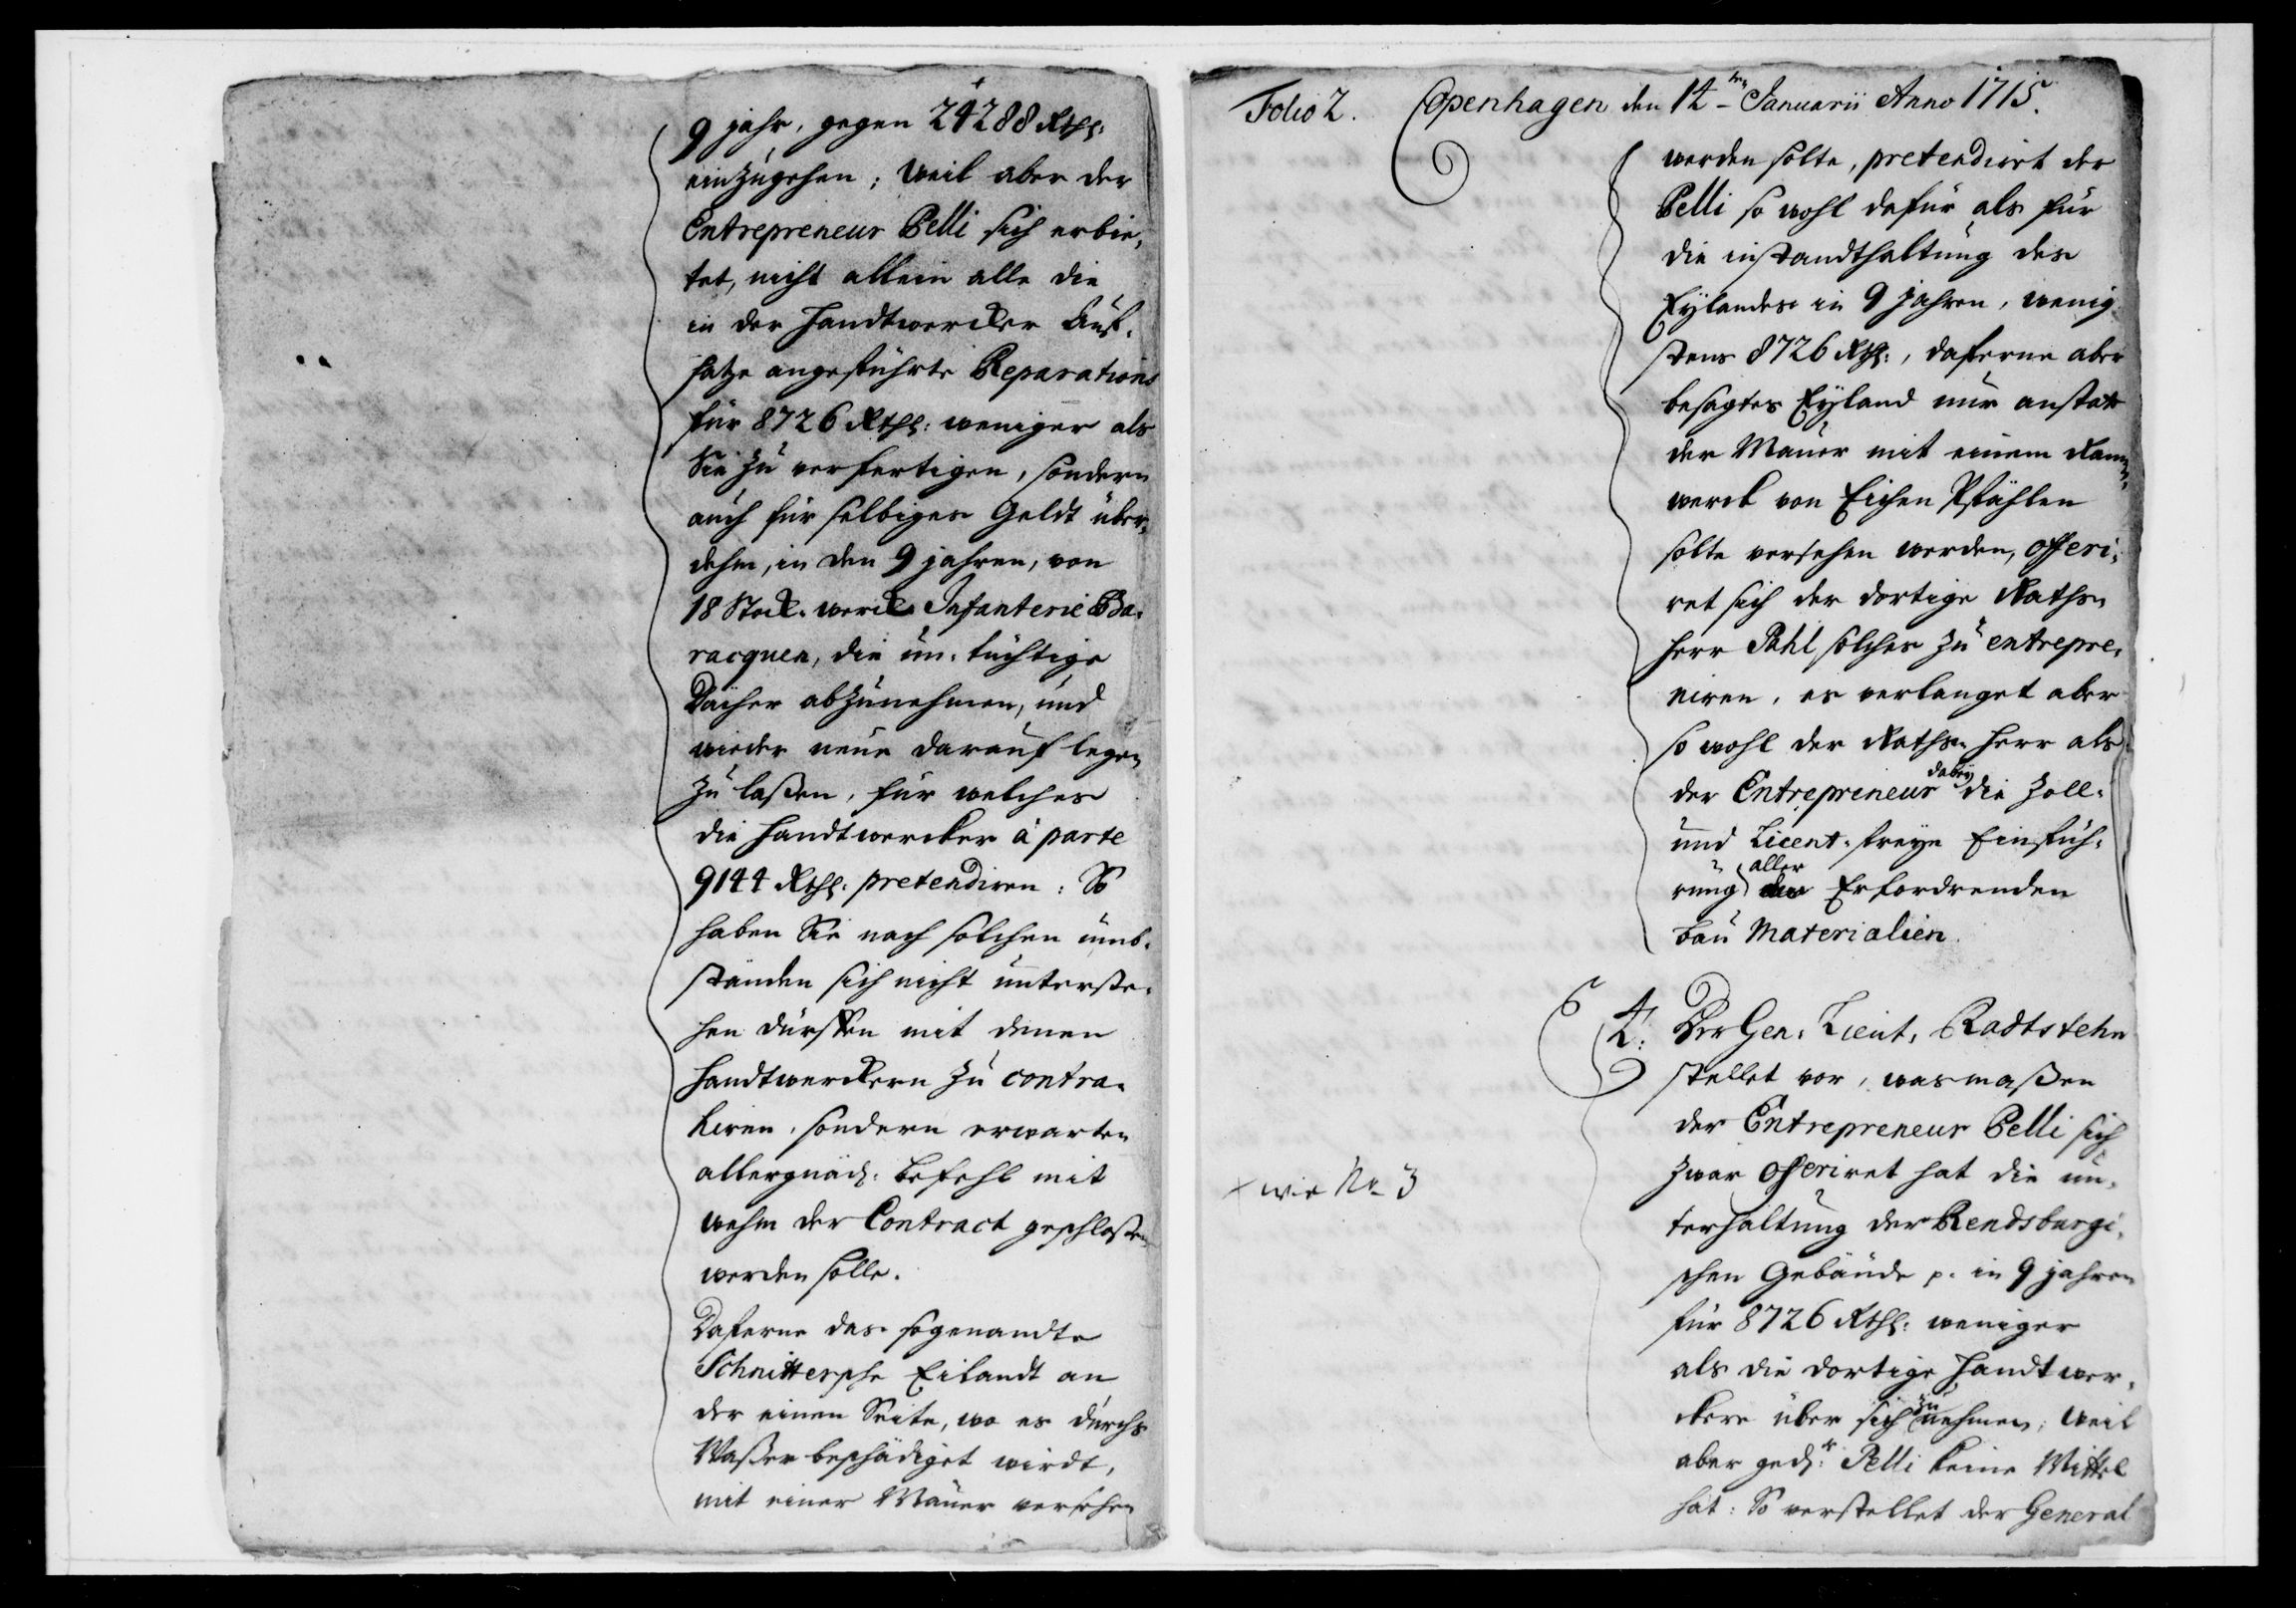 9 jahr, gegen 24288 Rthl:
einzugehen; Weil aber der
Entrepreneur Pelli sich erbie-
tet, nicht allein alle die
in der Handtwercker Auf-
satze angeführte Reparations
für 8726 Rthl: weniger als
Sie zu verfertigen, sondern
auch für selbiges Geldt über-
dehm, in den 9 jahren, von
18 Stock-werck Infanterie Ba-
racquen, die un-tüchtige
Dächer abzunehmen, und
wieder neue darauf legen
zu laßen, für welches
die Handtwercker à parte
9144 Rthl: pretendiren: So
haben Sie nach solchen umb-
ständen sich nicht unterste-
hen dürffen mit denen
Handtwerckern zu contra-
hiren, sondern erwarten
allergnäd: Befehl mit
wehm der Contract geschloßen
werden solle.
Daferne das sogenandte
Schnittersche Eilandt an
der einen Seite, wo es durchs
Waßer beschädiget wirdt,
mit einer Mauer versehen
Folio 2. Copenhagen den 14ten Januarii Anno 1715.
werden solte, pretendirt der
Pelli so wohl dafür als für
die instandthaltung des
Eylandes in 9 jahren, wenig
stens 8726 Rthl:, daferne aber
besagtes Eyland nur anstatt
der Mauer mit einem Ram-
werck von Eichen Pfählen
solte versehen werden, offeri-
ret sich der dortige Raths-
herr Pahl solches zu entrepre-
niren, es verlanget aber
so wohl der Raths-herr als
der Entrepreneur dabey die Zoll-
und Licent-freye Einfüh-
rung aller der Erfordrenden
bau Materialien.
4: Der Gen: Lieut: Radtstehn
stellet vor, wasmaßen
der Entrepreneur Pelli sich
zwar offeriret hat die un-
terhaltung der Rendsburgi-
schen Gebäude p. in 9 jahren
für 8726 Rthl: weniger
als die dortige Handtwer-
ckere über sich zu nehmen; Weil
aber gedr: Pelli keine Mittel
hat: So verstellet der General
+ wie No 3